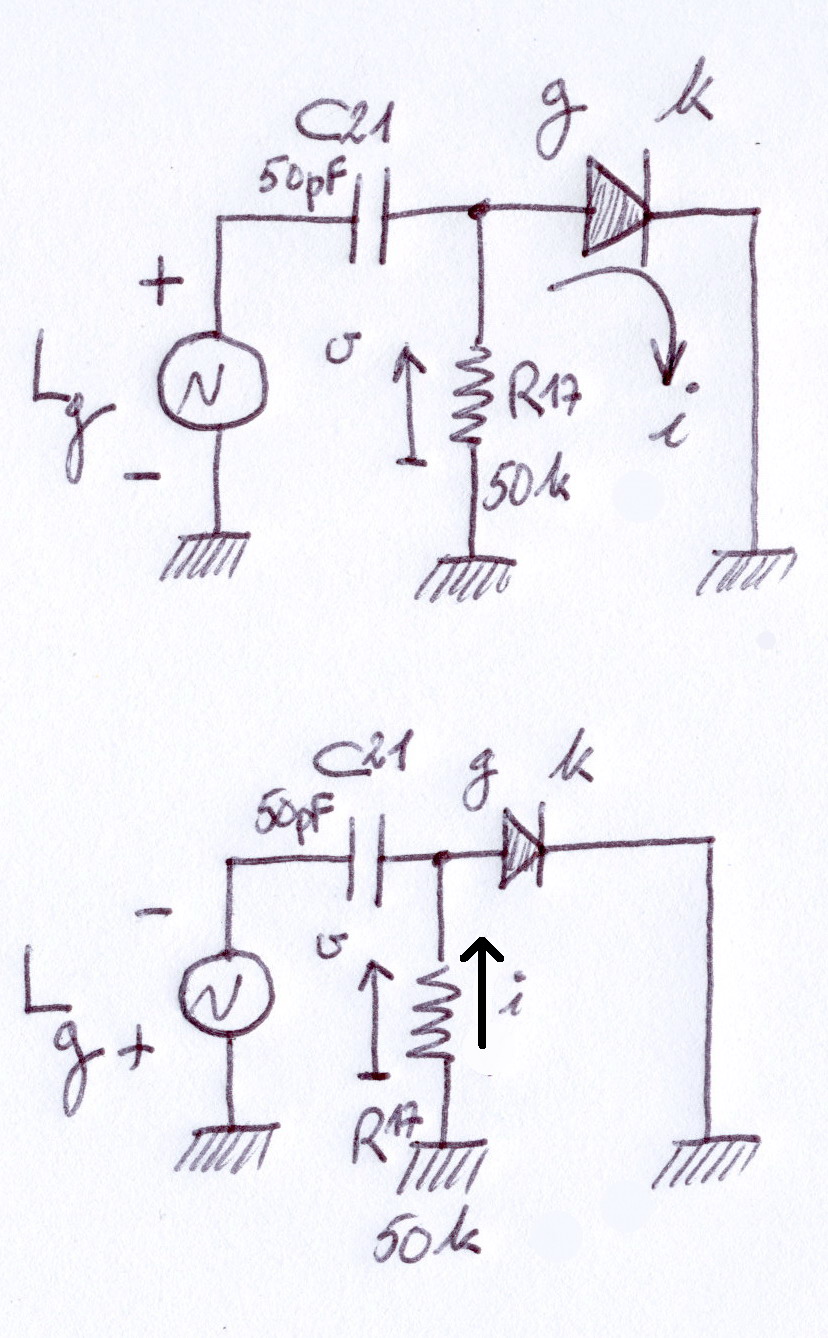 g k
C21
50pF
+
Lg
-
v
R17
50k
i
C21 g k
50pF
-
v
Lg
+
i
R17
50k